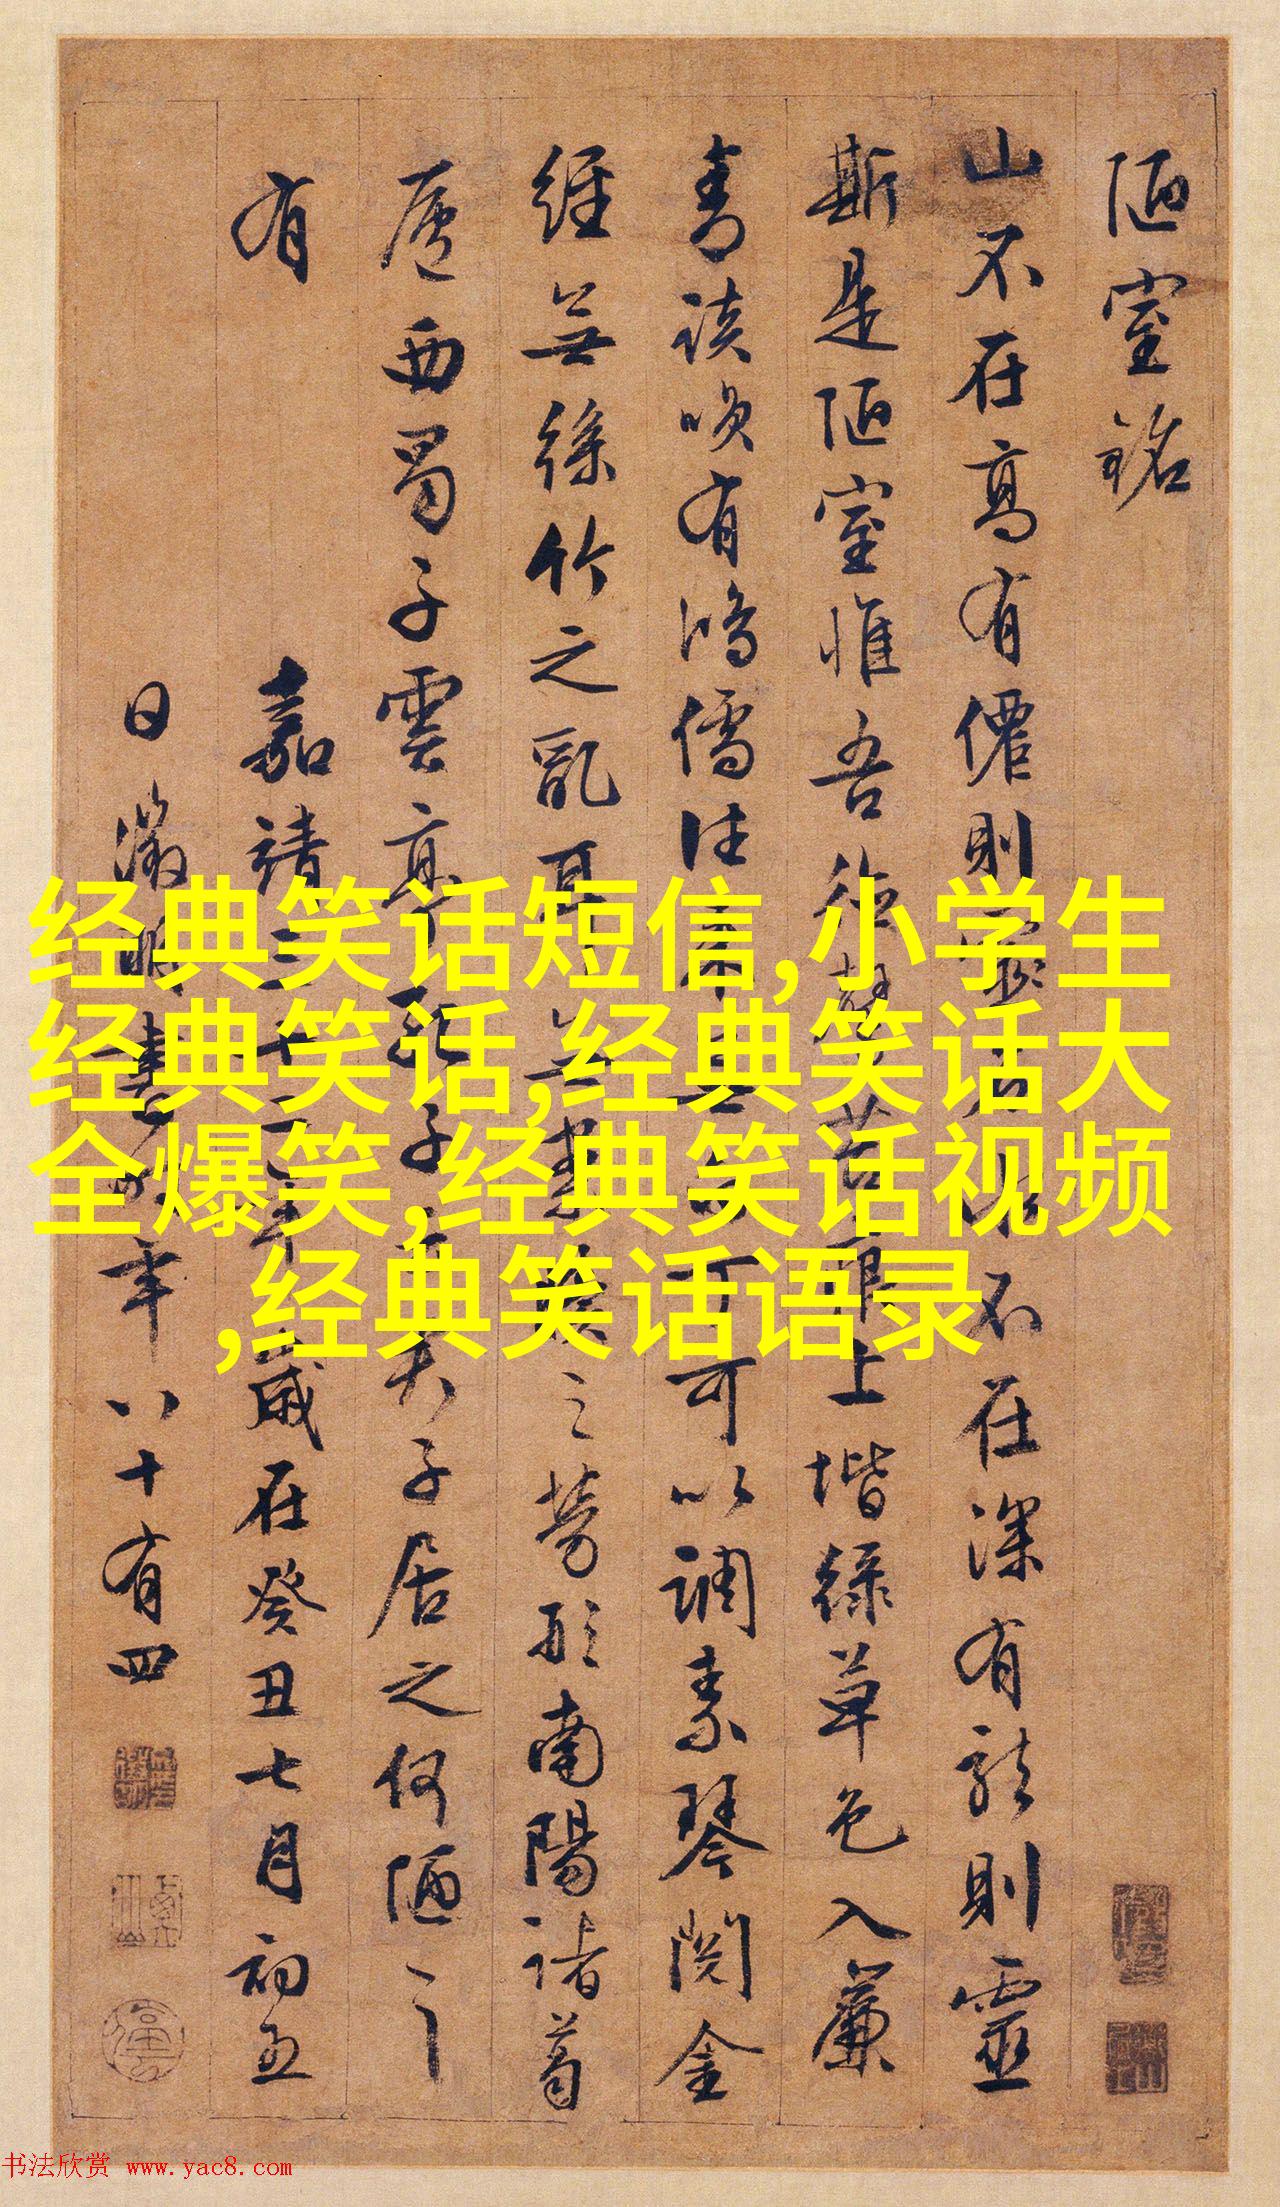 陋室銘
山不在高有僊則水不在深有龍則靈
斯是陋室惟吾德馨苔痕上堦綠草色入簾
青談唉有鴻儒往来無白丁可以調素琴閱金
經無絲竹之亂耳無案牘之勞形南陽諸葛
廬西蜀子雲亭孔子云君子居之何陋之
有
嘉靖三十二年歲在癸丑七月初五
日徵明書時年八十有四
经典笑话短信,小学生
经典笑话,经典笑话大
全爆笑,经典笑话视频
,经典笑话语录
书法欣赏 www.yac8.com